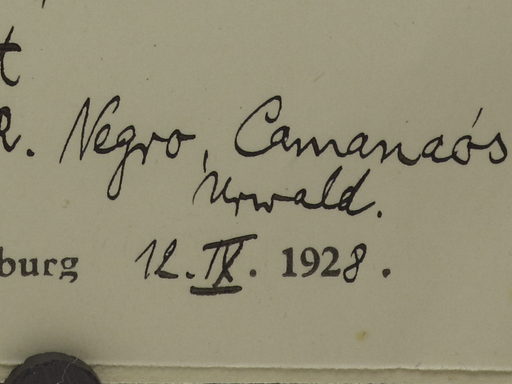 t
R. Negro, Camanaós
Urwald.
burg 12. IX. 1928.